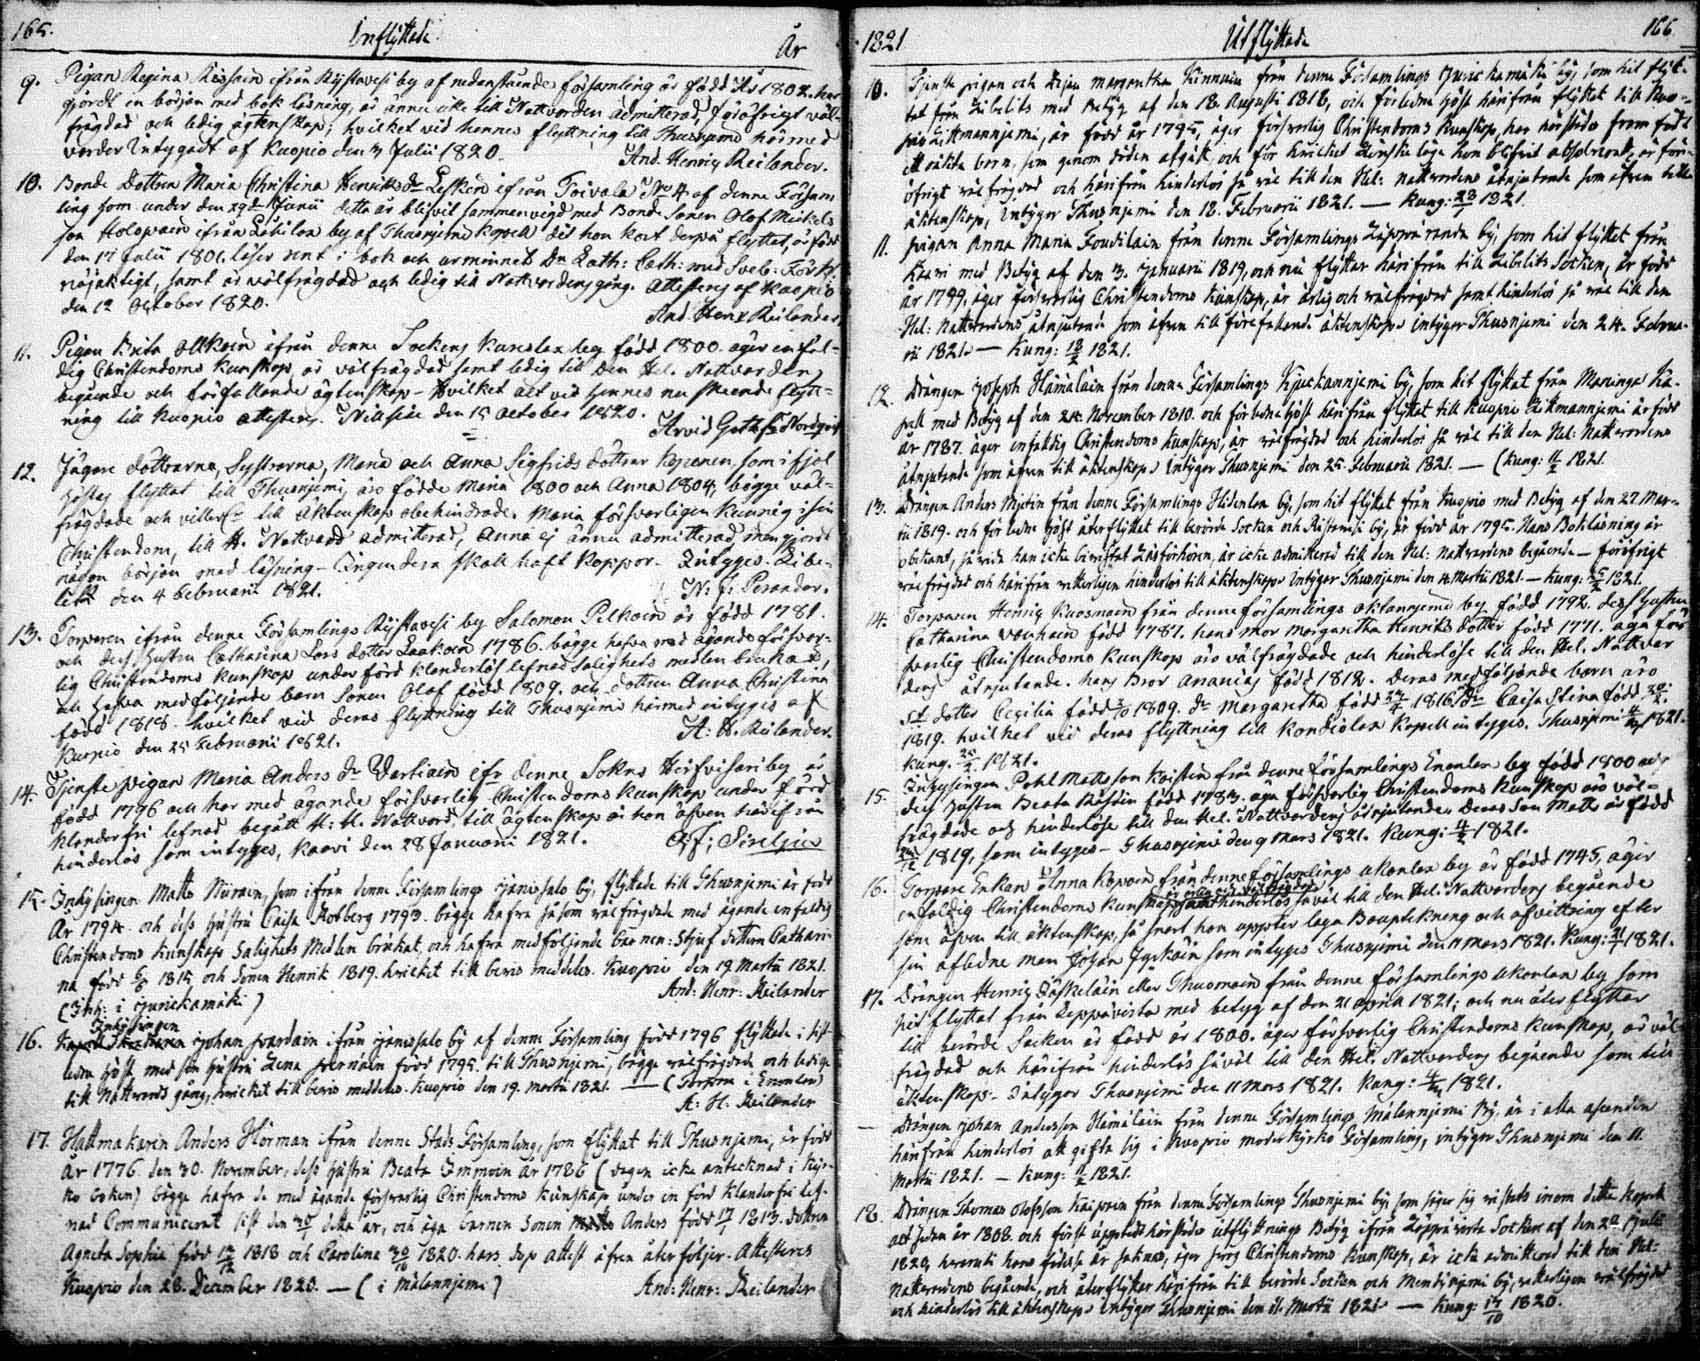 165.
Inflyttade
År
9. Pigan Regina Reissain ifrån Rystavesi by af nedanstående församling är född Års 1802. har
gjordt en början med bok läsning, är ännu icke till Nattvarden admitterad, i öfrigt väl-
frägdad och ledig ägtenskap; hvilket vid hennes flyttning till Thusnjemi härmed
varder Intygadt af Kuopio den 3 Julii 1820.
And. Henric Reilander.
10. Bonde Dottren Maria Christina Henriks dr Leskein ifrån Toivala No 4 af denne Försam
ling som under den 29de Junii detta år blifvit sammanvigd med Bonde Sonen Olof Mickels
son Holopain ifrån by af Thusnjemi Kapell dit hon kort derpå flyttat, är född
den 17 Julii 1801. läser rent i bok och ur minnet Dr Luth: Cath: med Sveb: Förkl.
nöjaktigt, samt är välfrägdad och ledig till Nattvardens gång. Attesteras af Kuopio
den 12 October 1820.
And. Henr Reilander
11. Pigan Brita Ollikain ifrån denne Sockens by född 1800. äger enfal-
dig Christendoms kunskap, är välfrägdad samt ledig till den Hel. Nattvarden
begående och förfallande ägtenskap - hvilket alt vid hennes nu skeende flytt-
ning till Kuopio attesteras. Nilsiä den 15 october 1820.
Arvid Gotth. Nordqvist
12. döttrarna, Systrarna, Maria och Anna Sigfrids döttrar Koponen, som i fjol
höstas flyttat till Thusnjemi, äro födde Maria 1800 och Anna 1804, bägge väl-
frägdade och till äktenskap obehindrade. Maria försvarligen kunnig i sin
Christendom, till H. Nattvard admitterad, Anna ej ännu admitterad, men gjordt
någon början med läsning - Ingendera skall haft koppor. Intygas. Libe-
litz den 4 Februarii 1821.
N. J. Perander.
13. Torparen ifrån denne Församlings Rystavesi by Salomon Pitkain är född 1781.
och dess Hustru Catharina Lars dotter Laakoin 1786. bägge hafva med ägande försvar-
lig Christendoms kunskap under förd klanderlös lefnad salighets medlen brukat,
och hafva medföljande barn Sonen Olof född 1809. och dottren Anna Christina
född 1818. hvilket vid deras flyttning till Thusnjemi härmed intygas af
Kuopio den 25 Februarii 1821.
A. H. Reilander.
14. Tjenste pigan Maria Anders dr Vartiain ifr. denne Sokns Hirfvisari by är
född 1796 och har med ägande försvarlig Christendoms kunskap under förd
klanderfri lefnad begått H: H. Nattvard, till ägtenskap är hon äfven härifrån
hinderlös som intygas, Kaavi den 28 Januarii 1821.
A. F. Sirelius
15. Inhysingen Matts Nurain, som ifrån denne Församlings Jännesalo by, flyttade till Thusnjemi är född
År 1794. och dess Hustru Caisa Hobberg 1793. bägge hafva såsom välfrägdade med ägande enfaldig
Christendoms Kunskap Salighets Medlen brukat, och hafva medföljande barnen: Stjuf dottern Cathari-
na född 1815, och Sonen Henrik 1819. hvilket till bevis meddelas. Kuopio den 19. Martii 1821.
(Inh: i Jurickamäki)
And: Henr: Reilander
16. Inhysingen Johan ifrån Jännesalo by af denne Församling född 1796 flyttade i sist-
ledne höst med sin Hustru Lena född 1795. till Thusnjemi, bägge välfrägdade och ledige
till Nattvards gång, hvilket till bevis meddelas. Kuopio den 19. Martii 1821. — (Torpare i Enonlax)
A. H. Reilander
17. Hattmakaren Anders Hörman ifrån denne Stads Församling, som flyttat till Thusnjemi, är född
År 1776. den 30. November, dess Hustru Beata Immoin År 1786 (dagen icke antecknad i Kyr-
ko boken) bägge hafva de med ägande försvarlig Christendoms kunskap under en förd klanderfri lef-
nad Communicerat sist den detta år, och äga barnen Sonen Anders född 1813. dottren
Agneta Sophia född 1818 och Carolina 30/10 1820. hars dop attest äfven återföljer. Attesteras
Kuopio den 28. December 1820. — (i Mälannjemi)
And: Henr: Reilander
1821
Utflyttade
166
10. Tjenste pigan och Margaretha Kinnuin från denne Församlings Jurickamäki by, som hit flyt-
tat från Libelitz med Betyg af den 18. Augusti 1818, och förledne höst härifrån flyttat till Kuo-
pio Litmannjemi, är född år 1795, äger försvarlig Christendoms Kunskap, har härstädes fram födt
ett oäkta barn, som genom döden afgått, och för hvilket hon blifvit absolverad, är för-
öfrigt välfrägdad och härifrån hinderlös så väl till den Hel: Nattvardens åtnjutande som äfven till
äktenskap, Intygar Thusnjemi den 18. Februarii 1821. — Kung: 1821.
11. Pigan Anna Maria Toudilain från denne Församlings Läppäranda by, som hit flyttat från
Kaavi med Betyg af den 3. Januarii 1819, och nu flyttar härifrån till Libelits Socken, är född
år 1799, äger försvarlig Christendoms kunskap, är ärlig och välfrägdad samt hinderlös så väl till den
Hel: Nattvardens åtnjutande som äfven till förefallande äktenskap intygar Thusnjemi den 24. Februa-
rii 1821. — Kung: 18/3 1821.
12. Drängen Joseph Hämäläin från denne Församlings by, som hit flyttat från Maninga Ka-
pell med Betyg af den 24. November 1810. och förledne höst härifrån flyttat till Kuopio Litmannjemi är född
år 1787. äger enfaldig Christendoms kunskap, är välfrägdad och hinderlös så väl till den Hel: Nattvardens
åtnjutande som äfven till äktenskap intygar Thusnjemi den 25. Februarii 1821. — (Kung: 1821.
13. Drängen Anders Mjetin från denne Församlings Hidenlax by, som hit flyttat från Kuopio med Betyg af den 27. Mar-
tii 1819. och förledne höst återflyttat till berörde Socken och by, är född år 1795. Hans Bokläsning är
obekant, så vida han icke bivistat Läsförhören, är icke admitterad till den Hel: Nattvardens begående — föröfrigt
välfrägdad och härifrån vetterligen hinderlös till äktenskap intygar Thusnjemi den 4. Martii 1821. — Kung: 1821.
14. Torparen Henric Kuosmain från denne församlings by född 1792. dess Hustru
Catharina född 1787. hans mor Margaretha Henriks dotter född 1771. äga för
svarlig Christendoms kunskap äro välfrägdade och hinderlöse till den Hel. Nattvar
dens åtnjutande. hans Bror Ananias född 1812. Deras medföljande barn äro
dotter Cecilia född 1809. Dr Margaretha född 1816. Dr Caisa Stina född
1819. hvilket vid deras flyttning till Kondiolax Kapell intygas. Thusnjemi 1821.
Kung. 1821.
15. Inhysingen Pehl Matsson från denne församlings Enonlax by född 1800 och
dess Hustru Beata född 1783. äga försvarlig Christendoms kunskap äro väl-
frägdade och hinderlöse till den Hel. Nattvardens åtnjutande. Deras Son Matts är född
1819, som intygas - Thusnjemi den 9 Mars 1821. Kung: 1821.
16. Torpare Enkan Anna Koponen från denne församlings Akonlax by är född 1745, äger
enfaldig Christendoms kunskap, är ärlig och välfrägdad samt hinderlös så väl till den Hel: Nattvardens begående
som äfven till äktenskap, så snart hon uppter laga Bouptekning och afvittring efter
sin aflidne man Johan som intygas Thusnjemi den 11 Mars 1821. Kung: 1821.
17. Drängen Henric Jääskeläin eller Thuomain från denne församlings Akonlax by som
hit flyttat från Leppävirta med betyg af den 21 april 1821; och nu åter flyttar
till berörde Socken är född år 1800. äger försvarlig Christendoms kunskap, är väl-
frägdad och härifrån hinderlös så väl till den Hel. Nattvardens begående som till
äktenskap - Intygar Thusnjemi den 11 Mars 1821. Kung: 1821.
— Drängen Johan Andersson Hämäläin från denne Församlings Mälannjemi By, är i alla afseenden
härifrån hinderlös att gifta sig i Kuopio moder Kyrko Församling, intygar Thusnjemi den 11.
Martii 1821. — Kung: 1821.
18. Drängen Thomas Olofsson från denne Församlings Thusnjemi by, som säger sig vistats inom detta Kapell
allt sedan år 1808. och först uppvist härstädes utflyttnings Betyg ifrån Leppävirta Socken af den 20. Julii
1820, hvaruti hans födelse år saknas, äger svag Christendoms kunskap, är icke admitterad till den Hel:
Nattvardens begående, och återflyttar härifrån till berörde Socken och by, vetterligen välfrägdad
och hinderlös till äktenskap intygar Thusnjemi den 11. Martii 1821. — Kung: 15/10 1820.